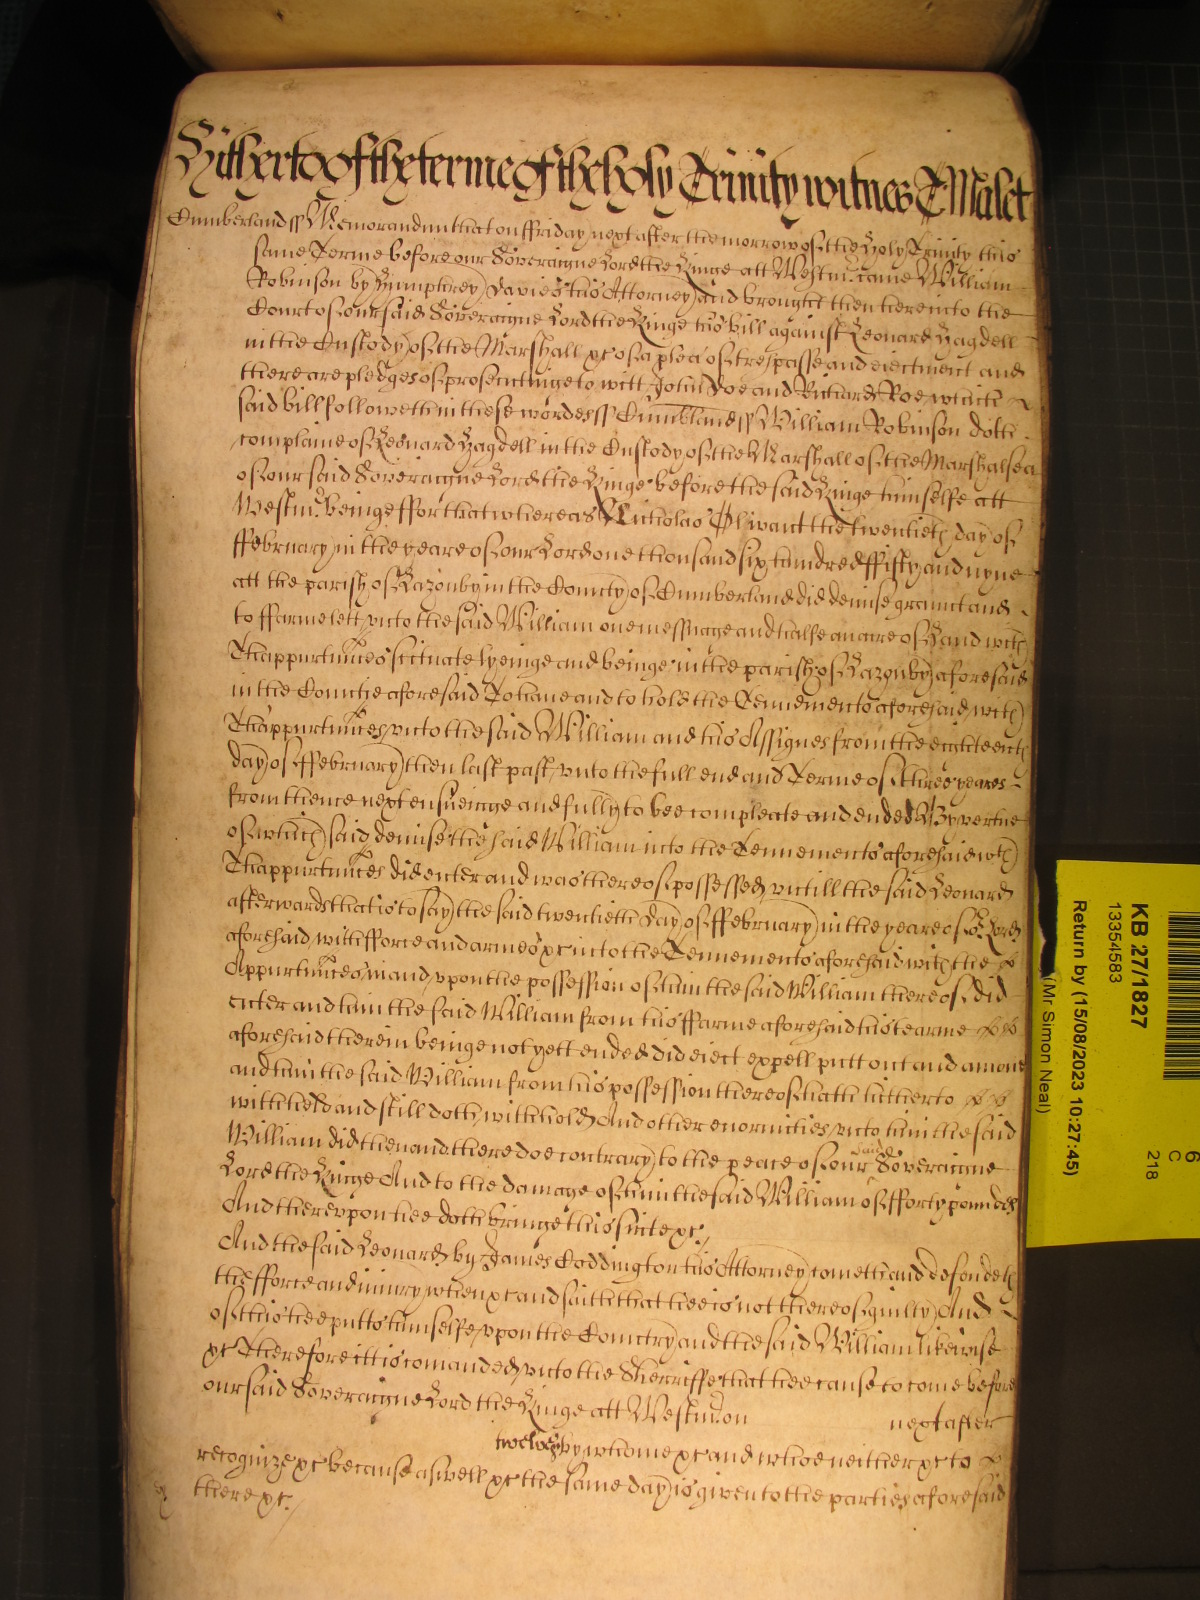 Hitherto of the terme of the holy Trinity witnes T Malet
Cumberland ss Memorandum that on ffriday next after the morrow of the Holy Trinity this
same Terme before our Soveraigne Lord the Kinge att Westmr. came William
Robinson by Humphrey Davies his Attorney and brought then here into the
Court of our said Soveraigne Lord the Kinge his bill against Leonard Hagdell
in the Custody of the Marshall &c of a plea of trespasse and eiectment and
there are pledges of prosecutinge to witt John Doe and Richard Roe which
said bill followeth in these wordes ss Cumbland ss William Robinson doth
complaine of Leonard Hagdell in the Custody of the Marshall of the Marshalsea
of our said Soveraigne Lord the Kinge before the said Kinge himselfe att
Westmr. beinge ffor that whereas Nicholas the twentieth day of
ffebruary in the yeare of our Lord one thousand six hundred ffifty and nyne
att the parish of Lazonby in the County of Cumberland did demise graunt and
to ffarme lett unto the said William one messuage and halfe an acre of Land with
Thappurtnces scituate lyeinge and beinge in the parish of Lazonby aforesaid
in the Countie aforesaid To have and to hold the Tennements aforesaid with
Thappurtnces unto the said William and his Assignes from the eighteenth
day of ffebruary then last past unto the full end and Terme of three yeares
from thence next ensueinge and fully to bee compleate and ended By vertue
of which said demise the said William into the Tennements aforesaid wth
Thappurtnces did enter and was thereof possessed untill the said Leonard
afterwards that is to say the said twentieth day of ffebruary in the yeare of or. Lord
aforesaid with fforce and armes &c into the Tennements aforesaid with the
Appurtnces in and upon the possession of him the said William thereof did
enter and him the said William from his ffarme aforesaid his tearme
aforesaid therein beinge not yett ended did eiect expell putt out and amove
and him the said William from his possession thereof hath hitherto
withheld and still doth withhold And other enormities unto him the said
William did then and there doe contrary to the peace of our said Soveraigne
Lord the Kinge And to the damage of him the said William of fforty poundes
And thereupon hee doth bringe this suite &c.
And the said Leonard by James Coddington his Attorney cometh and defendeth
the fforce and iniury when &c and saith that hee is not thereof guilty And
of this hee putts himselfe upon the Countrey and the said William likewise
&c Therefore itt is comanded unto the Sherriffe that hee cause to come before
our said Soveraigne Lord the Kinge att Westmr. on next after
twelve by whome &c and whoe neither &c to
recognize &c because aswell &c the same day is given to the parties aforesaid
there &c.
KB 27/1827
13354583
Return by (15/08/2023 10:27:45)
(Mr Simon Neal)
6
C
218